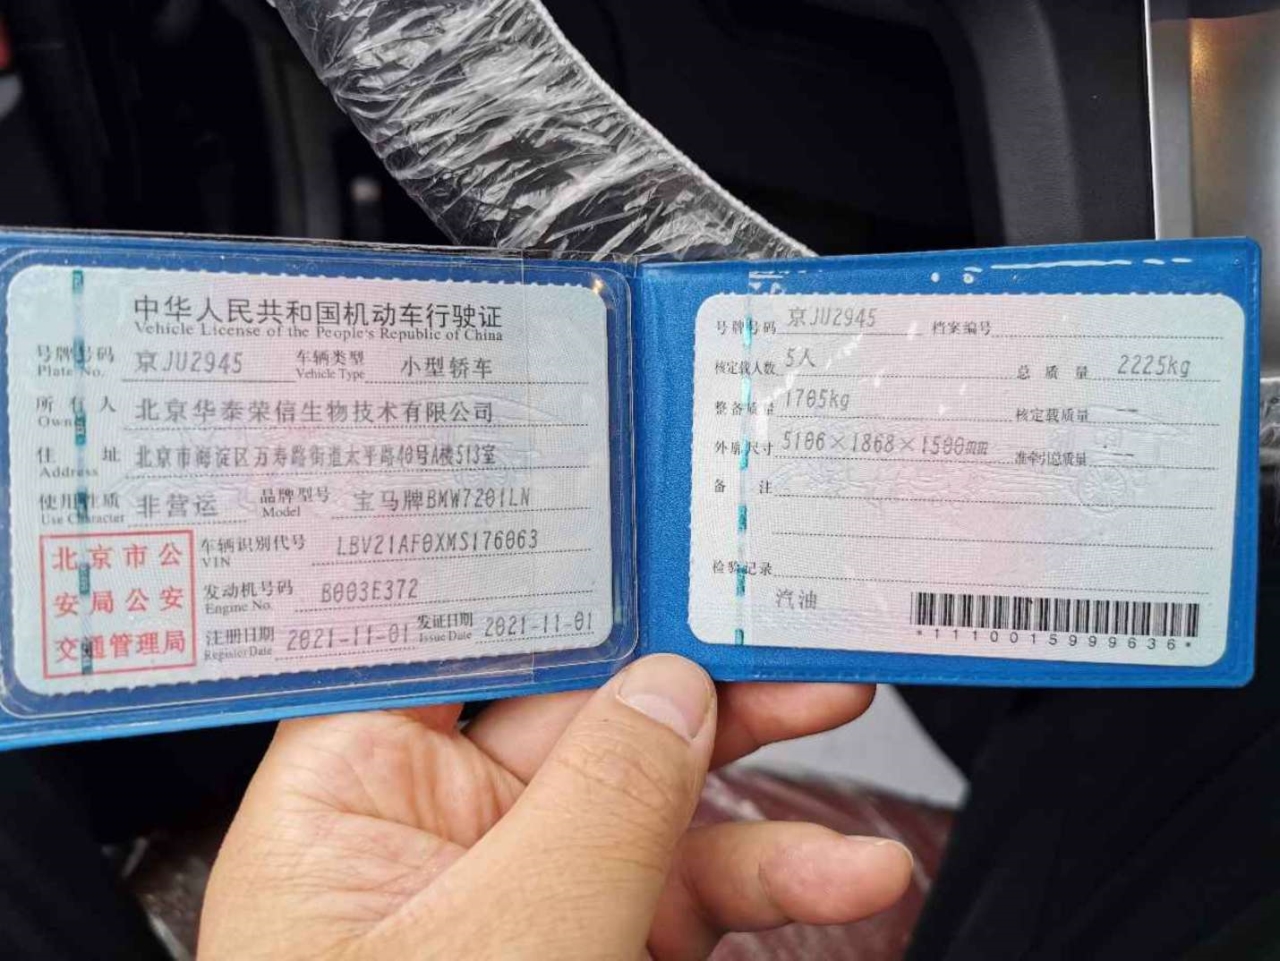 中华人民共和国机动车行驶证
Vehicle License of the People's Republic of China
号牌号码 京JU2945 车辆类型 小型轿车
Plate No. Vehicle Type
所有人 北京华泰荣信生物技术有限公司
Owner
住址 北京市海淀区万寿路街道太平路40号A楼513室
Address
使用性质 非营运 品牌型号 宝马牌BMW7201LN
Use Character Model
北京市公
安局公安
交通管理局
车辆识别代号 LBV21AF0XMS176063
VIN
发动机号码 B003E372
Engine No.
注册日期 2021-11-01 发证日期 2021-11-01
Register Date Issue Date
号牌号码 京JU2945 档案编号
核定载人数 5人 总质量 2225kg
整备质量 1705kg 核定载质量 --
外廓尺寸 5106×1868×1500mm 准牵引总质量 --
备注
检验记录
汽油
*1110015999636*